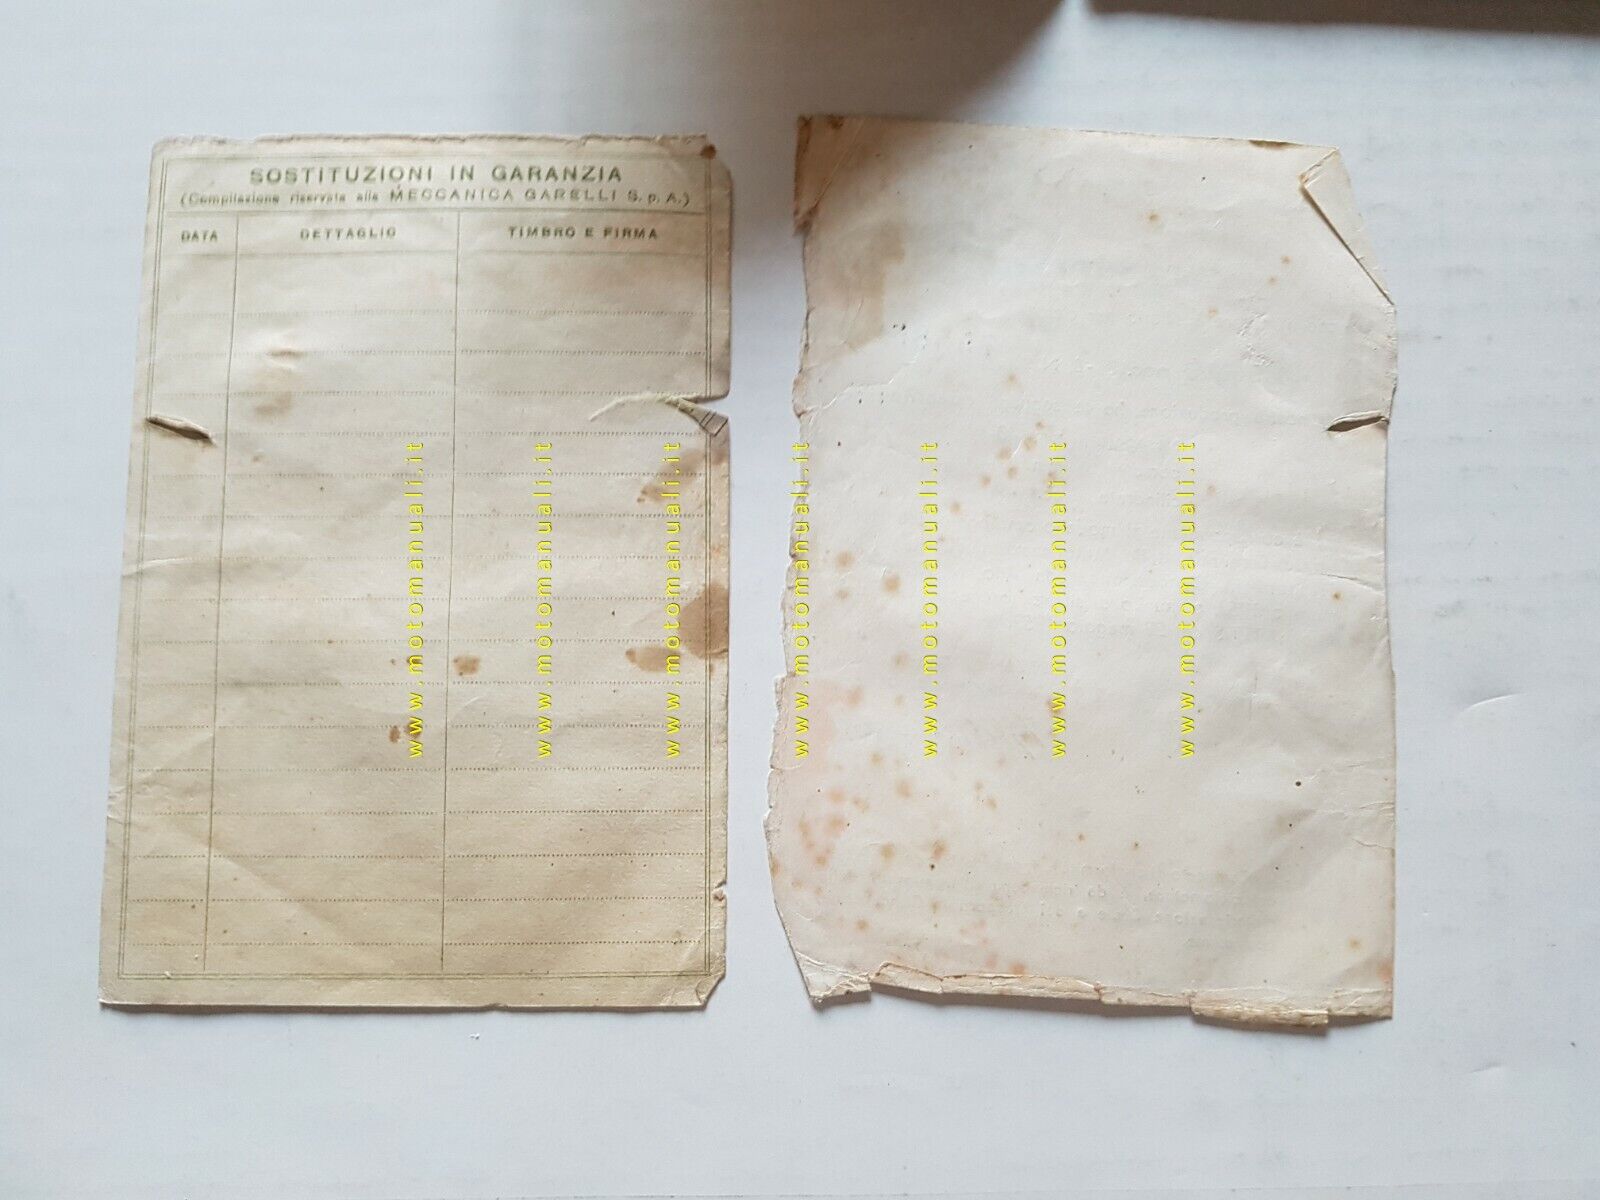 SOSTITUZIONI IN GARANZIA
(Compilazione riservata alla MECCANICA GARELLI S. p. A.)
DATA DETTAGLIO TIMBRO E FIRMA
www.motomanuali.it
www.motomanuali.it
www.motomanuali.it
www.motomanuali.it
www.motomanuali.it
www.motomanuali.it
www.motomanuali.it